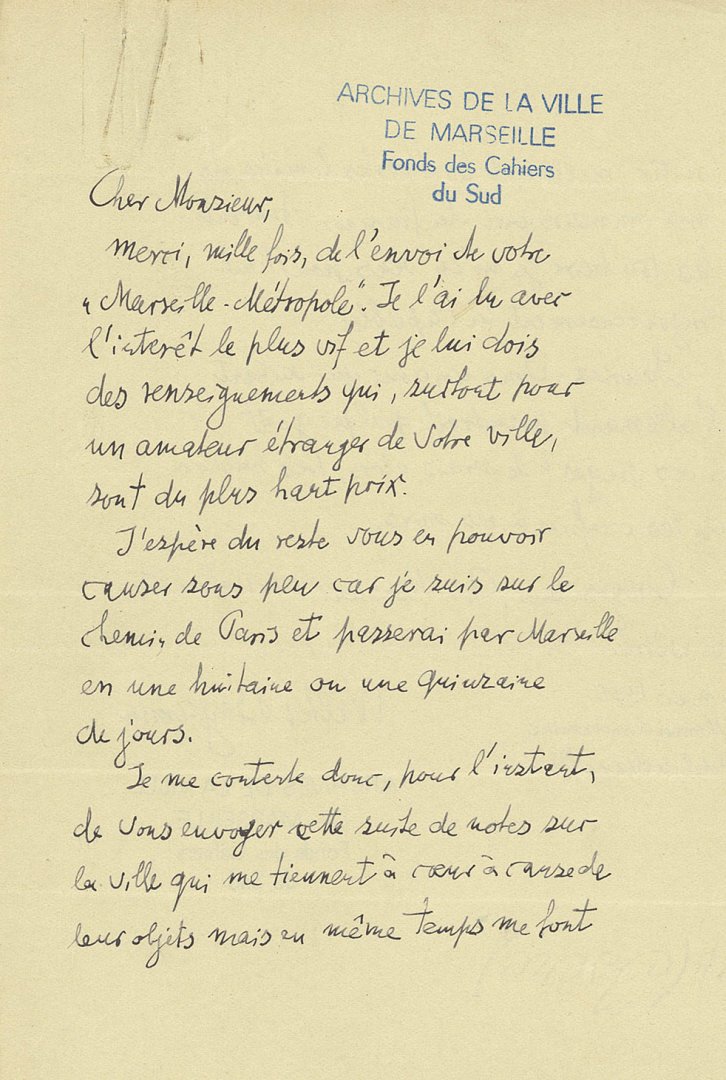 ARCHIVES DE LA VILLE
DE MARSEILLE
Fonds des Cahiers
du Sud
Cher Monsieur,
merci, mille fois, de l'envoi de votre
„Marseille-Métropole". Je l'ai lu avec
l'interêt le plus vif et je lui dois
des renseignements qui, surtout pour
un amateur étranger de Votre ville,
sont du plus haut prix.
J'espère du reste vous en pouvoir
causer sous peu car je suis sur le
chemin de Paris et passerai par Marseille
en une huitaine ou une quinzaine
de jours.
Je me contente donc, pour l'instant,
de Vous envoyer cette suite de notes sur
la ville qui me tiennent à cœur à cause de
leur objets mais en même temps me font